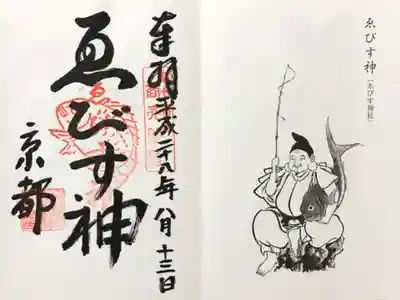 奉拝 平成二十八年八月十三日
ゑびす神
京都
ゑびす神
(ゑびす神社)